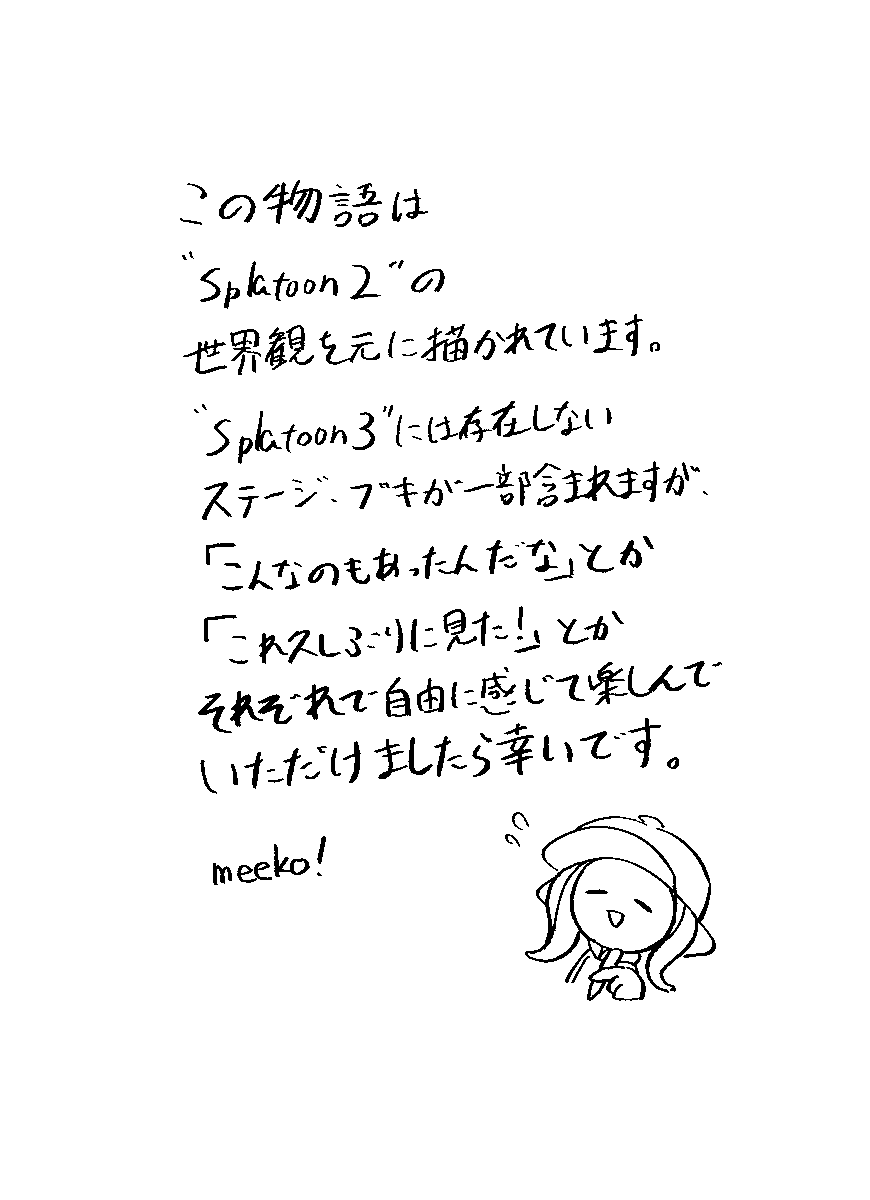 この物語は
"Splatoon2"の
世界観を元に描かれています。
"Splatoon3"には存在しない
ステージ、ブキが一部含まれますが、
「こんなのもあったんだな」とか
「これ久しぶりに見た!」とか
それぞれで自由に感じて楽しんで
いただけましたら幸いです。
meeko!